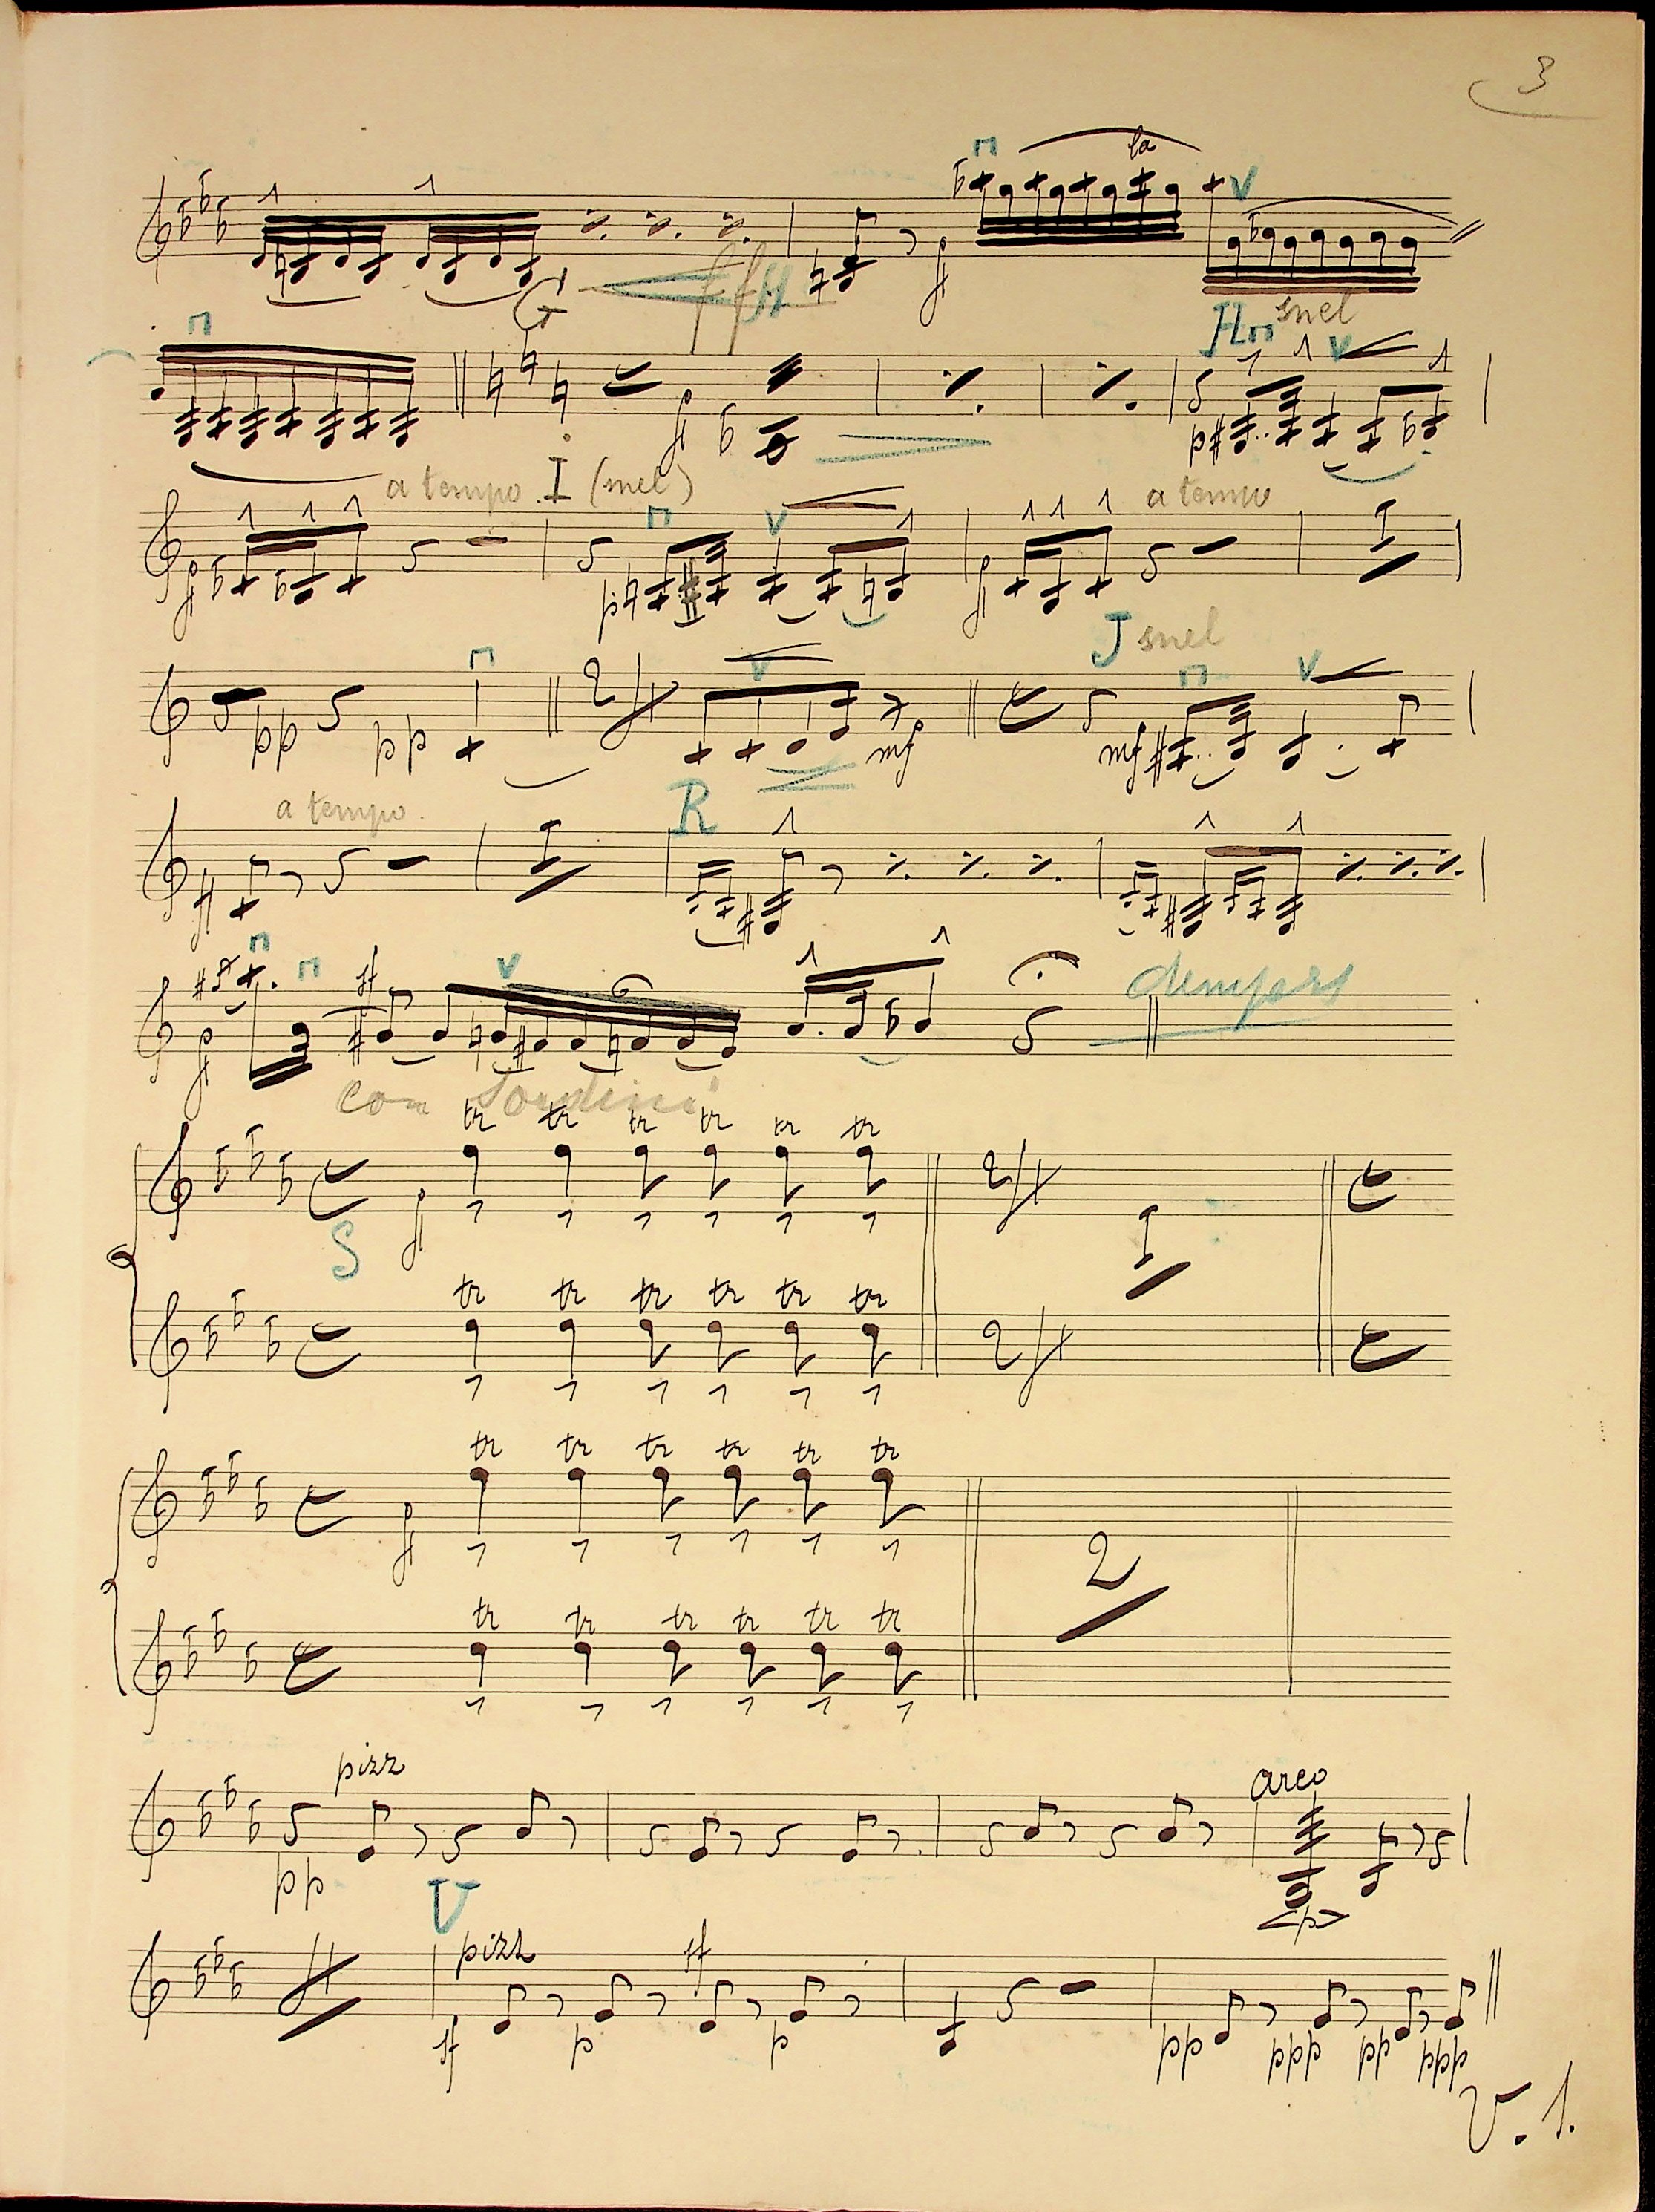 3
la
f
G ff H
H snel
f p
a tempo I (snel) a tempo
f p f I
J snel
pp pp 2/4 mf mf
a tempo. R
ff I
ff dempers
f
con sordini
tr tr tr tr tr tr
f 2/4
S I
tr tr tr tr tr tr
2/4
tr tr tr tr tr tr
f
2
tr tr tr tr tr tr
pizz arco
pp p
U
pizz sf
4
sf p p pp ppp pp ppp
V. 1.